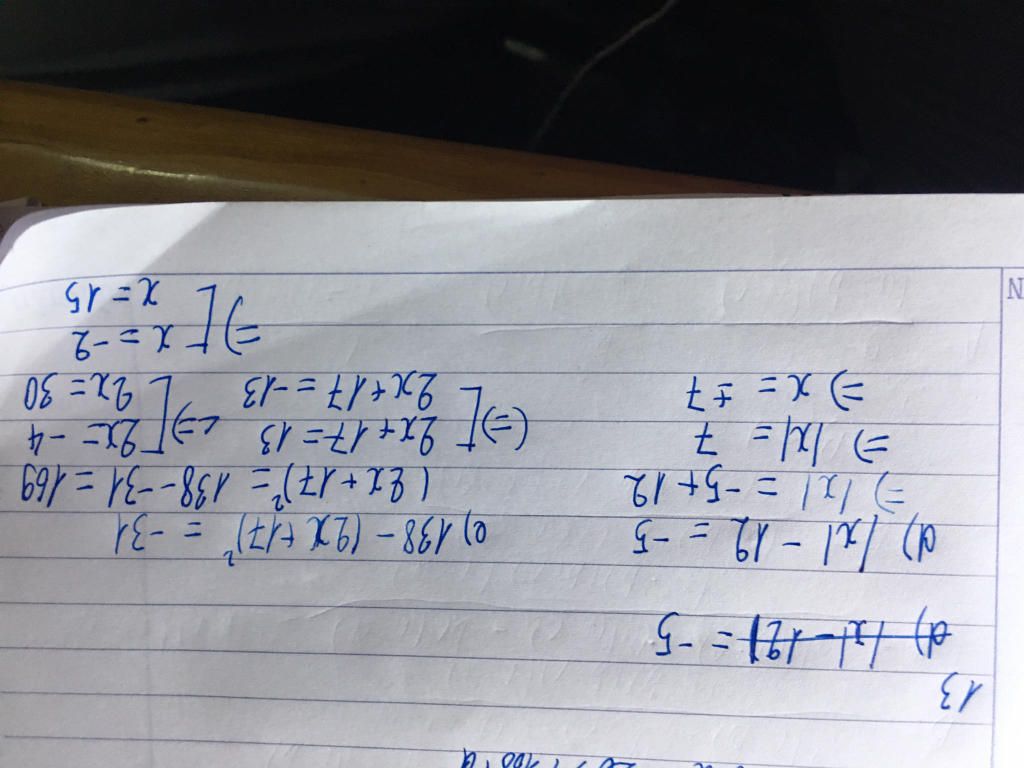 13
d) |x| - 12| = -5
d) |x| - 12 = -5
=> |x| = -5 + 12
=> |x| = 7
=> x = ±7
e) 138 - (2x + 17)² = -31
(2x + 17)² = 138 - -31 = 169
(=) [ 2x + 17 = 13 <=> [ 2x = -4
2x + 17 = -13 2x = 30
=> [ x = -2
x = 15
N